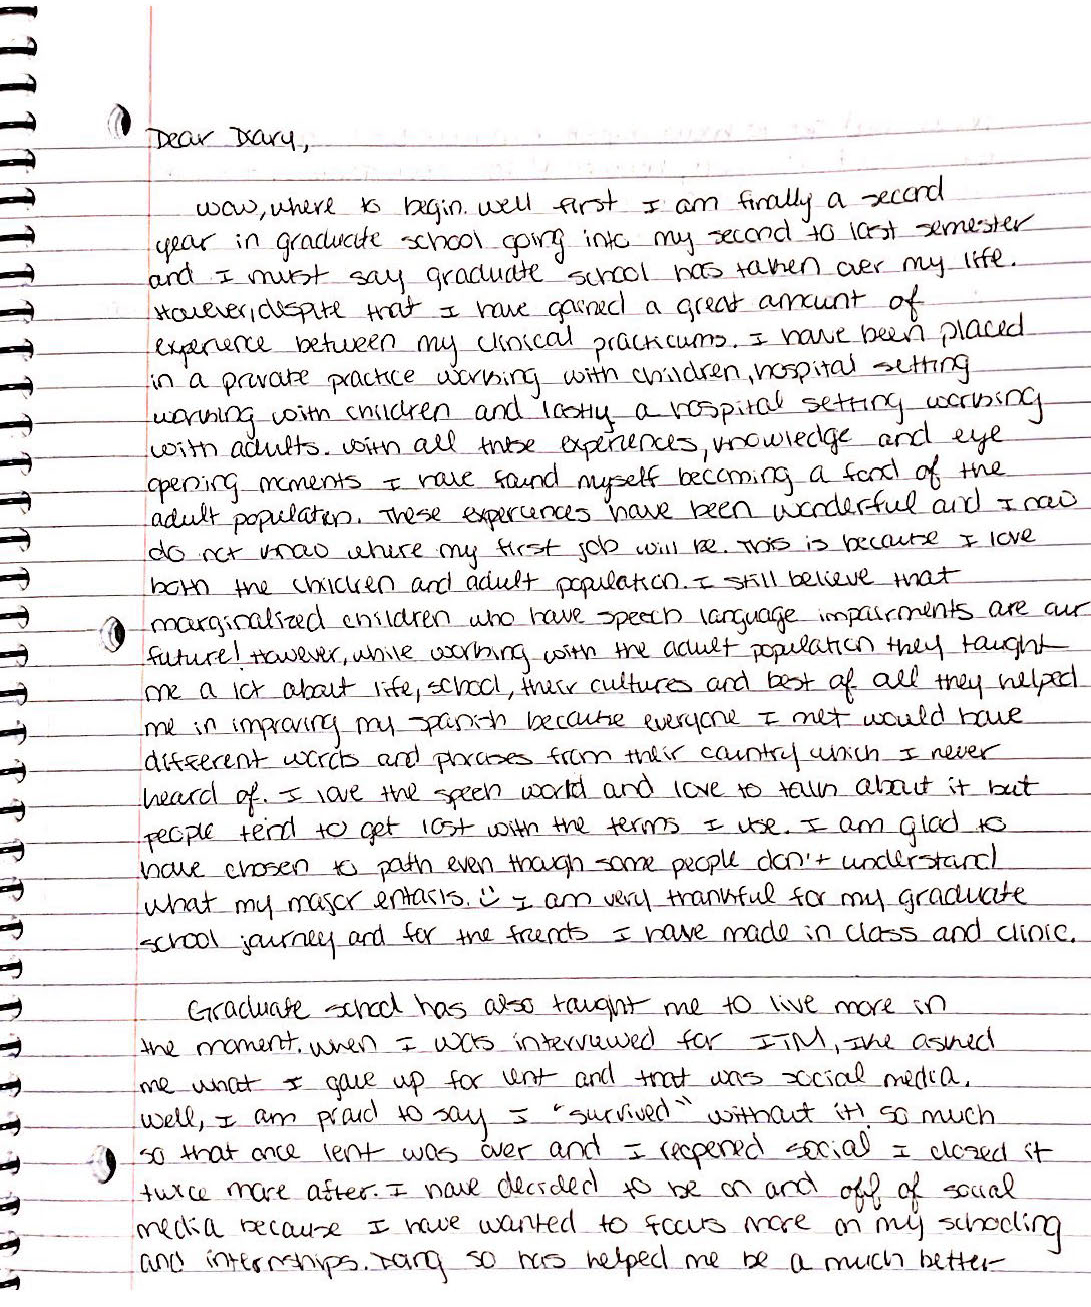 Dear Diary,
Wow, where to begin. Well first I am finally a second
year in graduate school going into my second to last semester
and I must say graduate school has taken over my life.
However, despite that I have gained a great amount of
experience between my clinical practicums. I have been placed
in a private practice working with children, hospital setting
working with children and lastly a hospital setting working
with adults. With all these experiences, knowledge and eye
opening moments I have found myself becoming a fond of the
adult population. These experiences have been wonderful and I now
do not know where my first job will be. This is because I love
both the children and adult population. I still believe that
marginalized children who have speech language impairments are our
future! However, while working with the adult population they taught
me a lot about life, school, their cultures and best of all they helped
me in improving my Spanish because everyone I met would have
different words and phrases from their country which I never
heard of. I love the speech world and love to talk about it but
people tend to get lost with the terms I use. I am glad to
have chosen to path even though some people don't understand
what my major entails. :) I am very thankful for my graduate
school journey and for the friends I have made in class and clinic.
Graduate school has also taught me to live more in
the moment. When I was interviewed for ITM, asked
me what I gave up for lent and that was social media.
Well, I am proud to say I "survived" without it! So much
so that once lent was over and I reopened social I closed it
twice more after. I have decided to be on and off of social
media because I have wanted to focus more on my schooling
and internships. Doing so has helped me be a much better